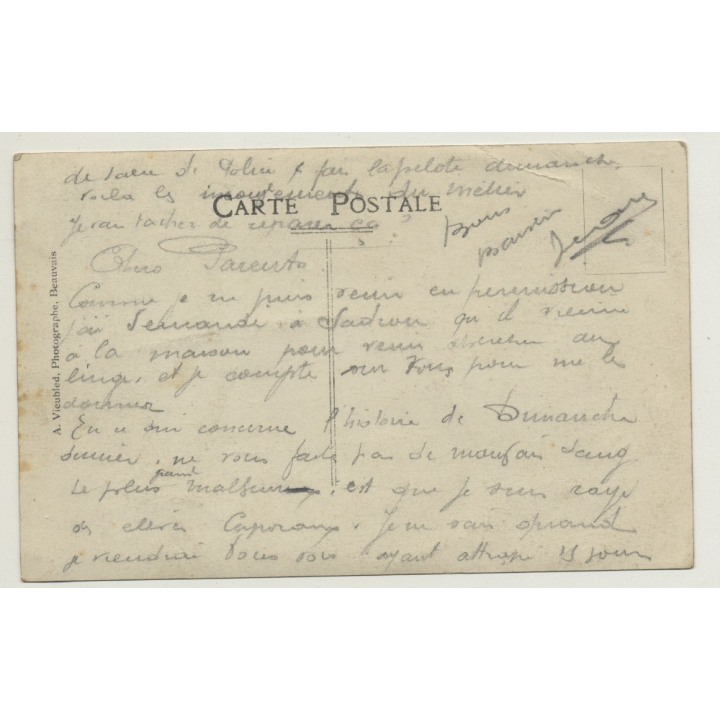 de salle de Police & pas la pelote dimanche
voila les mouvements du métier
Je vais tacher de reparer ça
CARTE POSTALE
Bons
baisers
Chers Parents
Comme je ne puis venir en permission
j'ai demandé à qu'il vienne
à la maison pour venir chercher du
linge, et je compte sur vous pour me le
donner
En ce qui concerne l'histoire de Dimanche
dernier, ne vous faites pas de mauvais sang
Le plus grand malheur, est que je suis rayé
des élèves Caporaux. Je ne sais quand
je viendrai vous voir ayant attrapé 15 jours
A. Vieubled, Photographe, Beauvais